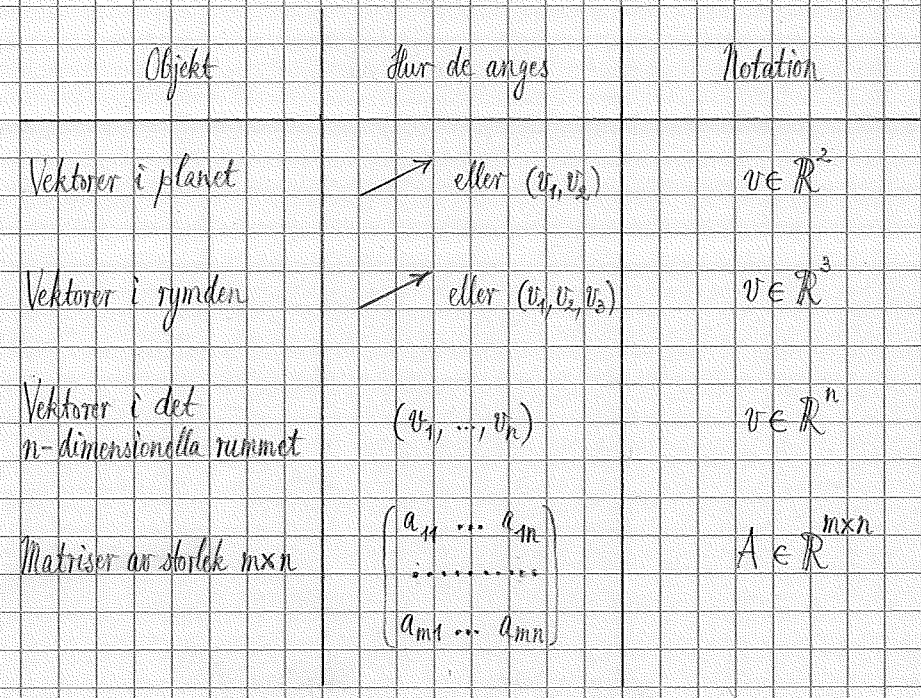 Objekt Hur de anges Notation
Vektorer i planet eller (v₁,v₂) v ∈ ℝ²
Vektorer i rymden eller (v₁,v₂,v₃) v ∈ ℝ³
Vektorer i det
n-dimensionella rummet (v₁, ..., vₙ) v ∈ ℝⁿ
Matriser av storlek m×n A ∈ ℝ^{m×n}
a₁₁ ... a₁ₙ
..........
aₘ₁ ... aₘₙ